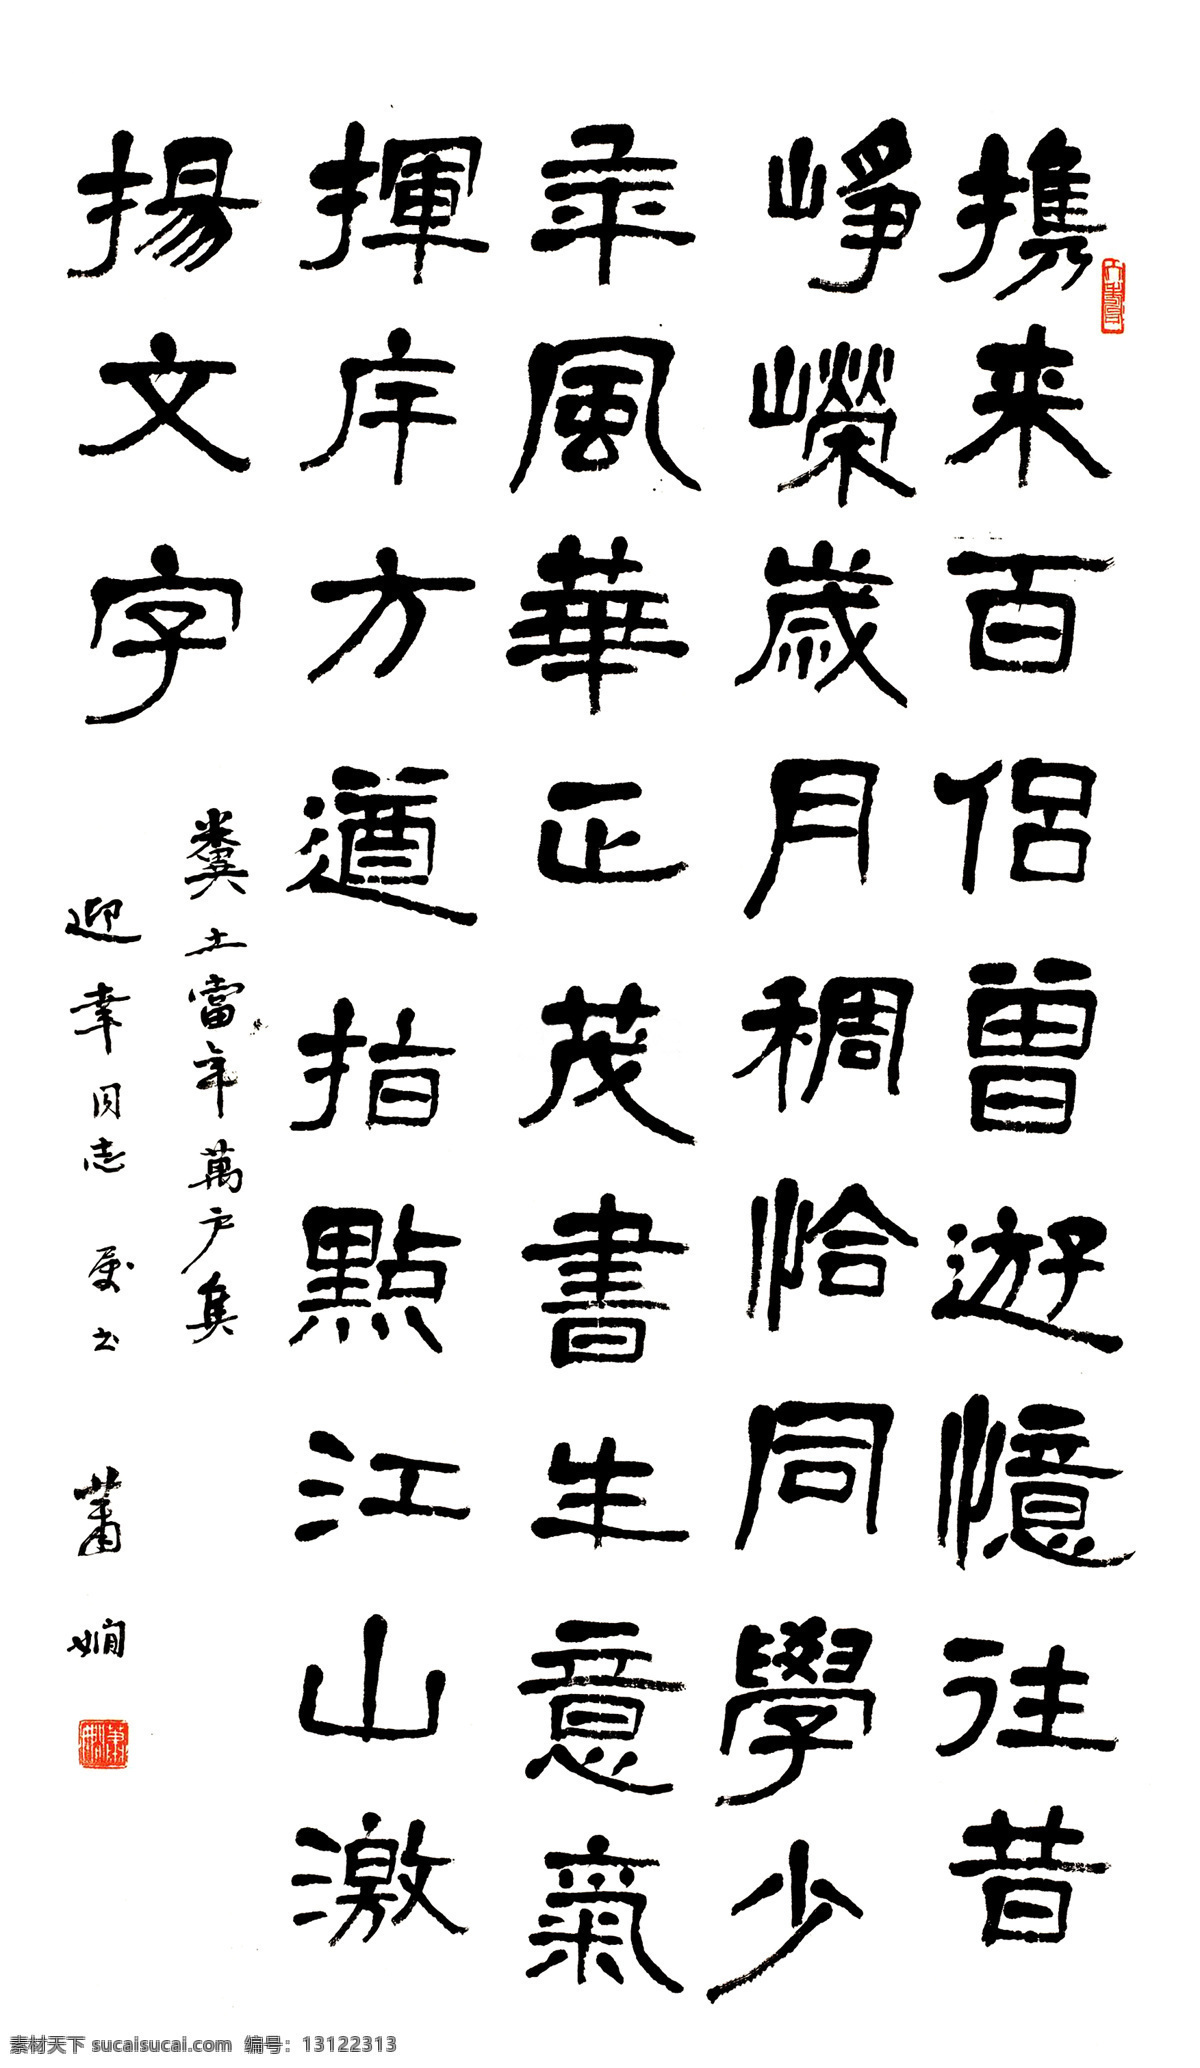 携来百侶曾遊憶往昔
崢嶸歲月稠恰同學少
年風華正茂書生意氣
揮斥方遒指點江山激
揚文字
糞土當年萬户矦
迎幸同志 属书 蕭嫻
素材天下 sucaisucai.com 编号：13122313